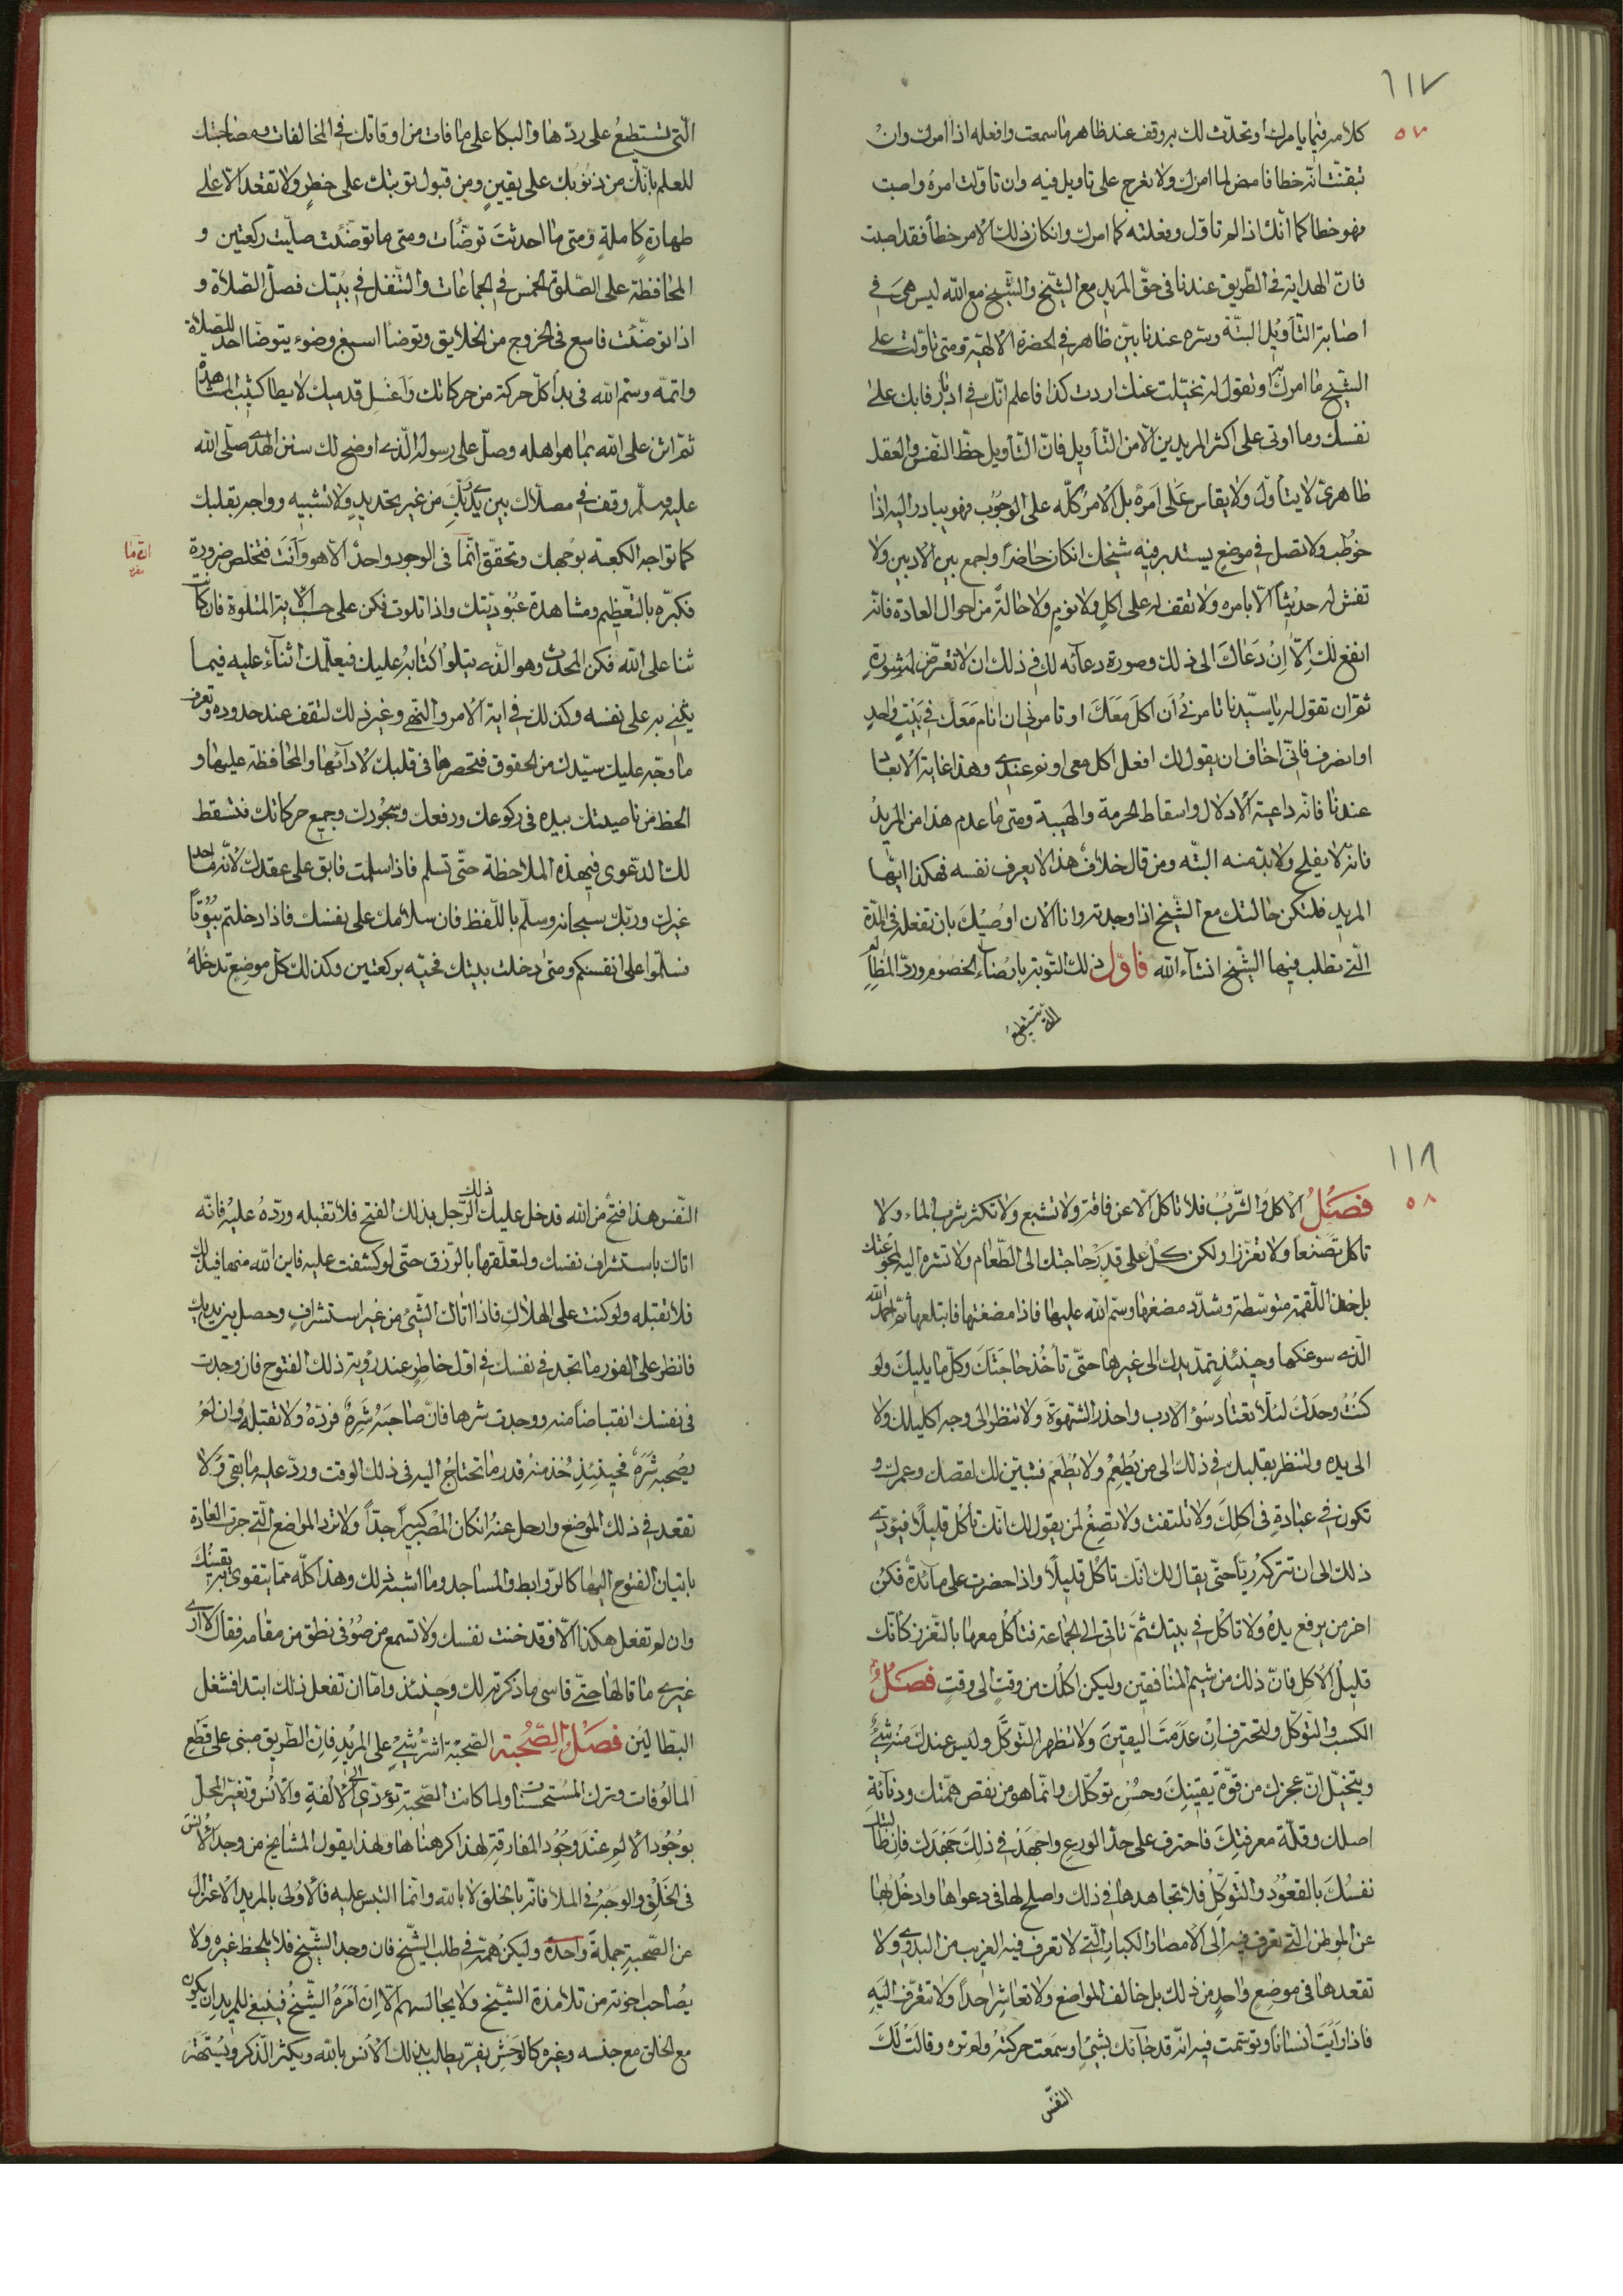 ١١٧
٥٧
كلامه فيما يامرك او تحدّث لك به وقف عند ظاهر ما سمعت وافعله اذا امرك وان
تيقنت انّه خطا فامض لما امرك ولا تعرج على تاويل فيه وان تاوّلت امره واصبت
فهو خطا كما انّك اذا لم تاوّل وفعلته كما امرك وانكان ذلك الامر خطأ فقد اصبت
فانّ الهداية فى الطّريق عندنا فى حقّ المريد مع الشّيخ والشّيخ مع الله ليس هى فى
اصابة التّأويل البتّة وسرّه عندنا بيّن ظاهر فى الحضرة الالهيّة ومتى تاوّلت على
الشّيخ ما امرك او تقول له تخيّلت عنك اردت كذا فاعلم انّك فى ادبار فابك على
نفسك وما اوتى على اكثر المريدين الّا من التّأويل فانّ التّأويل حظّ النّفس والعقل
ظاهرىّ لا يتاوّل ولا يقاس على امره بل الامر كلّه على الوجوب فهو يبادر اليه اذا
خوطب ولا تصل فى موضع يستدبر فيه شيخك انكان حاضرًا واجمع بين الادبين ولا
تفش له حديثًا الّا بامره ولا تقف له على اكلٍ ولا نومٍ ولا حالة من احوال العادة فانّه
انفع لك الّا ان دعاك الى ذلك وصورة دعآئه لك فى ذلك ان لا تعرّض لمشورة
ثمّ ان تقول له يا سيّدنا تامرنى أن اكل معك او تامرنى ان انام معك فى بيت واحد
او انصرف فانّى اخاف ان يقول لك افعل اكل معى او نم عندى وهذا غاية الابعاد
عندنا فانّه داعية الادلال واسقاط الحرمة والهيبة ومتى ما عدم هذا من المريد
فانّه لا يفلح ولا بدّ منه البتّه ومن قال خلاف هذا لا يعرف نفسه فهكذا ايّها
المريد فلتكن حالتك مع الشّيخ اذا وجدته وانا الان اوصيك بان تفعله فى المدّة
الّتى تطلب فيها الشّيخ انشآء الله فاوّل ذلك التّوبة بارضآء الخصوم وردّ المظالم
الّتى تستطيع
الّتى تستطيع على ردّها والبكا على ما فات من اوقاتك فى المخالفات ومصاحبتك
للعلم بانّك من ذنوبك على يقينٍ ومن قبول توبتك على خطرٍ ولا تقعد الّا على
طهارةٍ كاملةٍ ومتى ما احدثت توضّأت ومتى ما توضّئت صلّيت ركعتين و
المحافظة على الصّلوة الخمس فى الجماعات والتّنفل فى بيتك فصل الصّلاة و
اذا توضّئت فاسع فى الخروج من الخلايق وتوضا اسبغ وضوء يتوضّا احد للصّلاة
واتمّه وسّم الله فى بدأ كلّ حركة من حركاتك واغسل قدميك لا يطا كثيب المشاهدة
ثمّ اثن على الله بما هو اهله وصلّ على رسوله الّذى اوضح لك سنن الهدى صلّى الله
عليه وسلّم وقف فى مصلّاك بين يدى ربّك من غير تحديدٍ ولا تشبيه وواجه بقلبك
كما تواجه الكعبة بوجهك وتحقّق انّما فى الوجود واحد الّا هو وأنت فتخلص ضرورة
فكبّره بالتّعظيم ومشاهدة عبوديّتك واذا تلوت فكن على حسب الاية المتلوة فان كانت
ثنا على الله فكن المحدث وهو الّذى يتلوا كتابه عليك فيعلّمك الثنآء عليه فيما
يثنى به على نفسه وكذلك فى اية الامر والنّهى وغير ذلك لتقف عند حدوده وتعرف
ما وجّه عليك سيّدك من الحقوق فتحصرها فى قلبك لادآئها والمحافظة عليها و
الحظ من ناصيتك بيده فى ركوعك ورفعك وسجودك وجميع حركاتك فتسقط
لك الدّعوى فى هذه الملاحظة حتّى تسلم فاذا سلمت فابق على عقدك لانّه ما احد
غيرك وربّك سبحانه وسلّم باللّفظ فان سلامك على نفسك فاذا دخلتم بيوتًا
فسلّموا على انفسكم ومتى دخلت بيتك فحيّه بركعتين وكذلك كلّ موضع تدخله
١١٨
٥٨
فصل الاكل والشّرب فلا تاكل الّا عن فاقة ولا تشبع ولا تكثر شرب الماء ولا
تاكل تصنعا ولا تعزّزا ولكن كل على قدر حاجتك الى الطّعام ولا تشره اليه لجوعتك
بل خذ اللّقمة متوسّطة وشدّد مضغها وسّم الله عليها فاذا مضغتها فابتلعها ثمّ احمد الله
الّذى سوغكها وحينئذٍ تمدّ يدك الى غيرها حتّى تأخذ حاجتك وكل ما يليك ولو
كنت وحدك لئلّا تعتاد سوء الادب واحذر الشّهوة ولا تنظر الى وجه اكيلك ولا
الى يده ولتنظر بقلبك فى ذلك الى من يُطعم ولا يُطعم فتبين لك نقصك وعجزك و
تكون فى عبادة فى اكلك ولا تلتفت ولا تصغ لمن يقول لك انّك تأكل قليلًا فيؤدى
ذلك الى ان تتركه ريآء حتّى يقال لك انّك تاكل قليلًا واذا حضرت على مآئدة فكن
اخر من يرفع يده ولا تاكل فى بيتك ثمّ تاتى الى الجماعة فتأكل معها بالتّعزز كانّك
قليل الأكل فانّ ذلك من شيم المنافقين وليكن اكلك من وقتٍ الى وقتٍ فصل
الكسب والتّوكّل ولتحترف ان عدمت اليقين ولا تظهر التّوكّل وليس عندك منه شئ
ويتخيّل انّ عجزك من قوّة يقينك وحسن توكّلك وانّما هو من نقص همّتك ودنآئة
اصلك وقلّة معرفتك فاحترف على حدّ الورع واجهد فى ذلك جهدك فان طالبتك
نفسك بالقعود والتّوكّل فلا تجاهدها فى ذلك واصلح لها فى دعواها وادخل بها
عن الموطن الّتى تعرف فيه الى الامصار الكبار الّتى لا تعرف فيه الغريب من البدوى ولا
تقعدها فى موضع واحدٍ من ذلك بل خالف المواضع ولا تعاشر احدًا ولا تتعرّف اليه
فاذا رأيت انسانًا وتوسّمت فيه انّه قد جآئك بشئٍ او سمعت حركته ولم تره وقالت لك
النّفس
النّفس هذا فتح من الله قد دخل عليك ذلك الرّجل بذلك الفتح فلا تقبله وردّه عليه فانّه
اتاك باستشراف نفسك ولتعلّقها بالرّزق حتّى لو كشفت عليه فاين الله منها قبل ذلك
فلا تقبله ولو كنت على الهلاك فاذا اتاك الشّئ من غير استشرافٍ وحصل بين يديك
فانظر على الفور ما تجد فى نفسك فى اوّل خاطرٍ عند رؤية ذلك الفتوح فان وجدت
فى نفسك انقباضًا منه ووجدت شرها فانّ صاحبه شره فردّه ولا تقبله وان لم
يصحبه شره فحينئذٍ خذ منه قدر ما تحتاج اليه فى ذلك الوقت وردّ عليه ما بقى ولا
تقعد فى ذلك الموضع وارحل عنه انكان المصر كبيرًا جدّا ولا ترد المواضع الّتى جرت العادة
باتيان الفتوح اليها كالرّوابط والمساجد وما اشبه ذلك وهذا كلّه ممّا يتقوى به يقينك
وان لم تفعل هكذا الّا وقد خنت نفسك ولا تسمع من صوفى نطق من مقامه فقال لا ارى
غيرى ما قالها حتّى قاسى ما ذكرته لك وحينئذ وامّا ان تفعل ذلك ابتدا فشغل
البطّالين فصل الصّحبة الصّحبة اشرّ شئ على المريد فانّ الطّريق مبنى على قطع
المالوفات وترك المستحسنات ولما كانت الصّحبة تؤدّى الى الالفة والانس وتغيّر المحلّ
بوجود الالم عند وجود المفارقة لهذا كرهناها ولهذا يقول المشايخ من وجد الانس
فى الخلق والوحدة فى الملأ فانّه بالخلق لا بالله وانّما التبس عليه فالاولى بالمريد الاعتزال
عن الصّحبة جملةً واحدةً وليكن همّته فى طلب الشّيخ فان وجد الشّيخ فلا يلحظ غيره ولا
يصاحب اخوته من تلامذة الشّيخ ولا يجالسهم الّا ان امره الشّيخ فينبغى للمريد ان يكون
مع الخلق مع جنسه وغيره كالوحش يفرّ يطلب بذلك الانس بالله ويكثر الذّكر ويستهتر